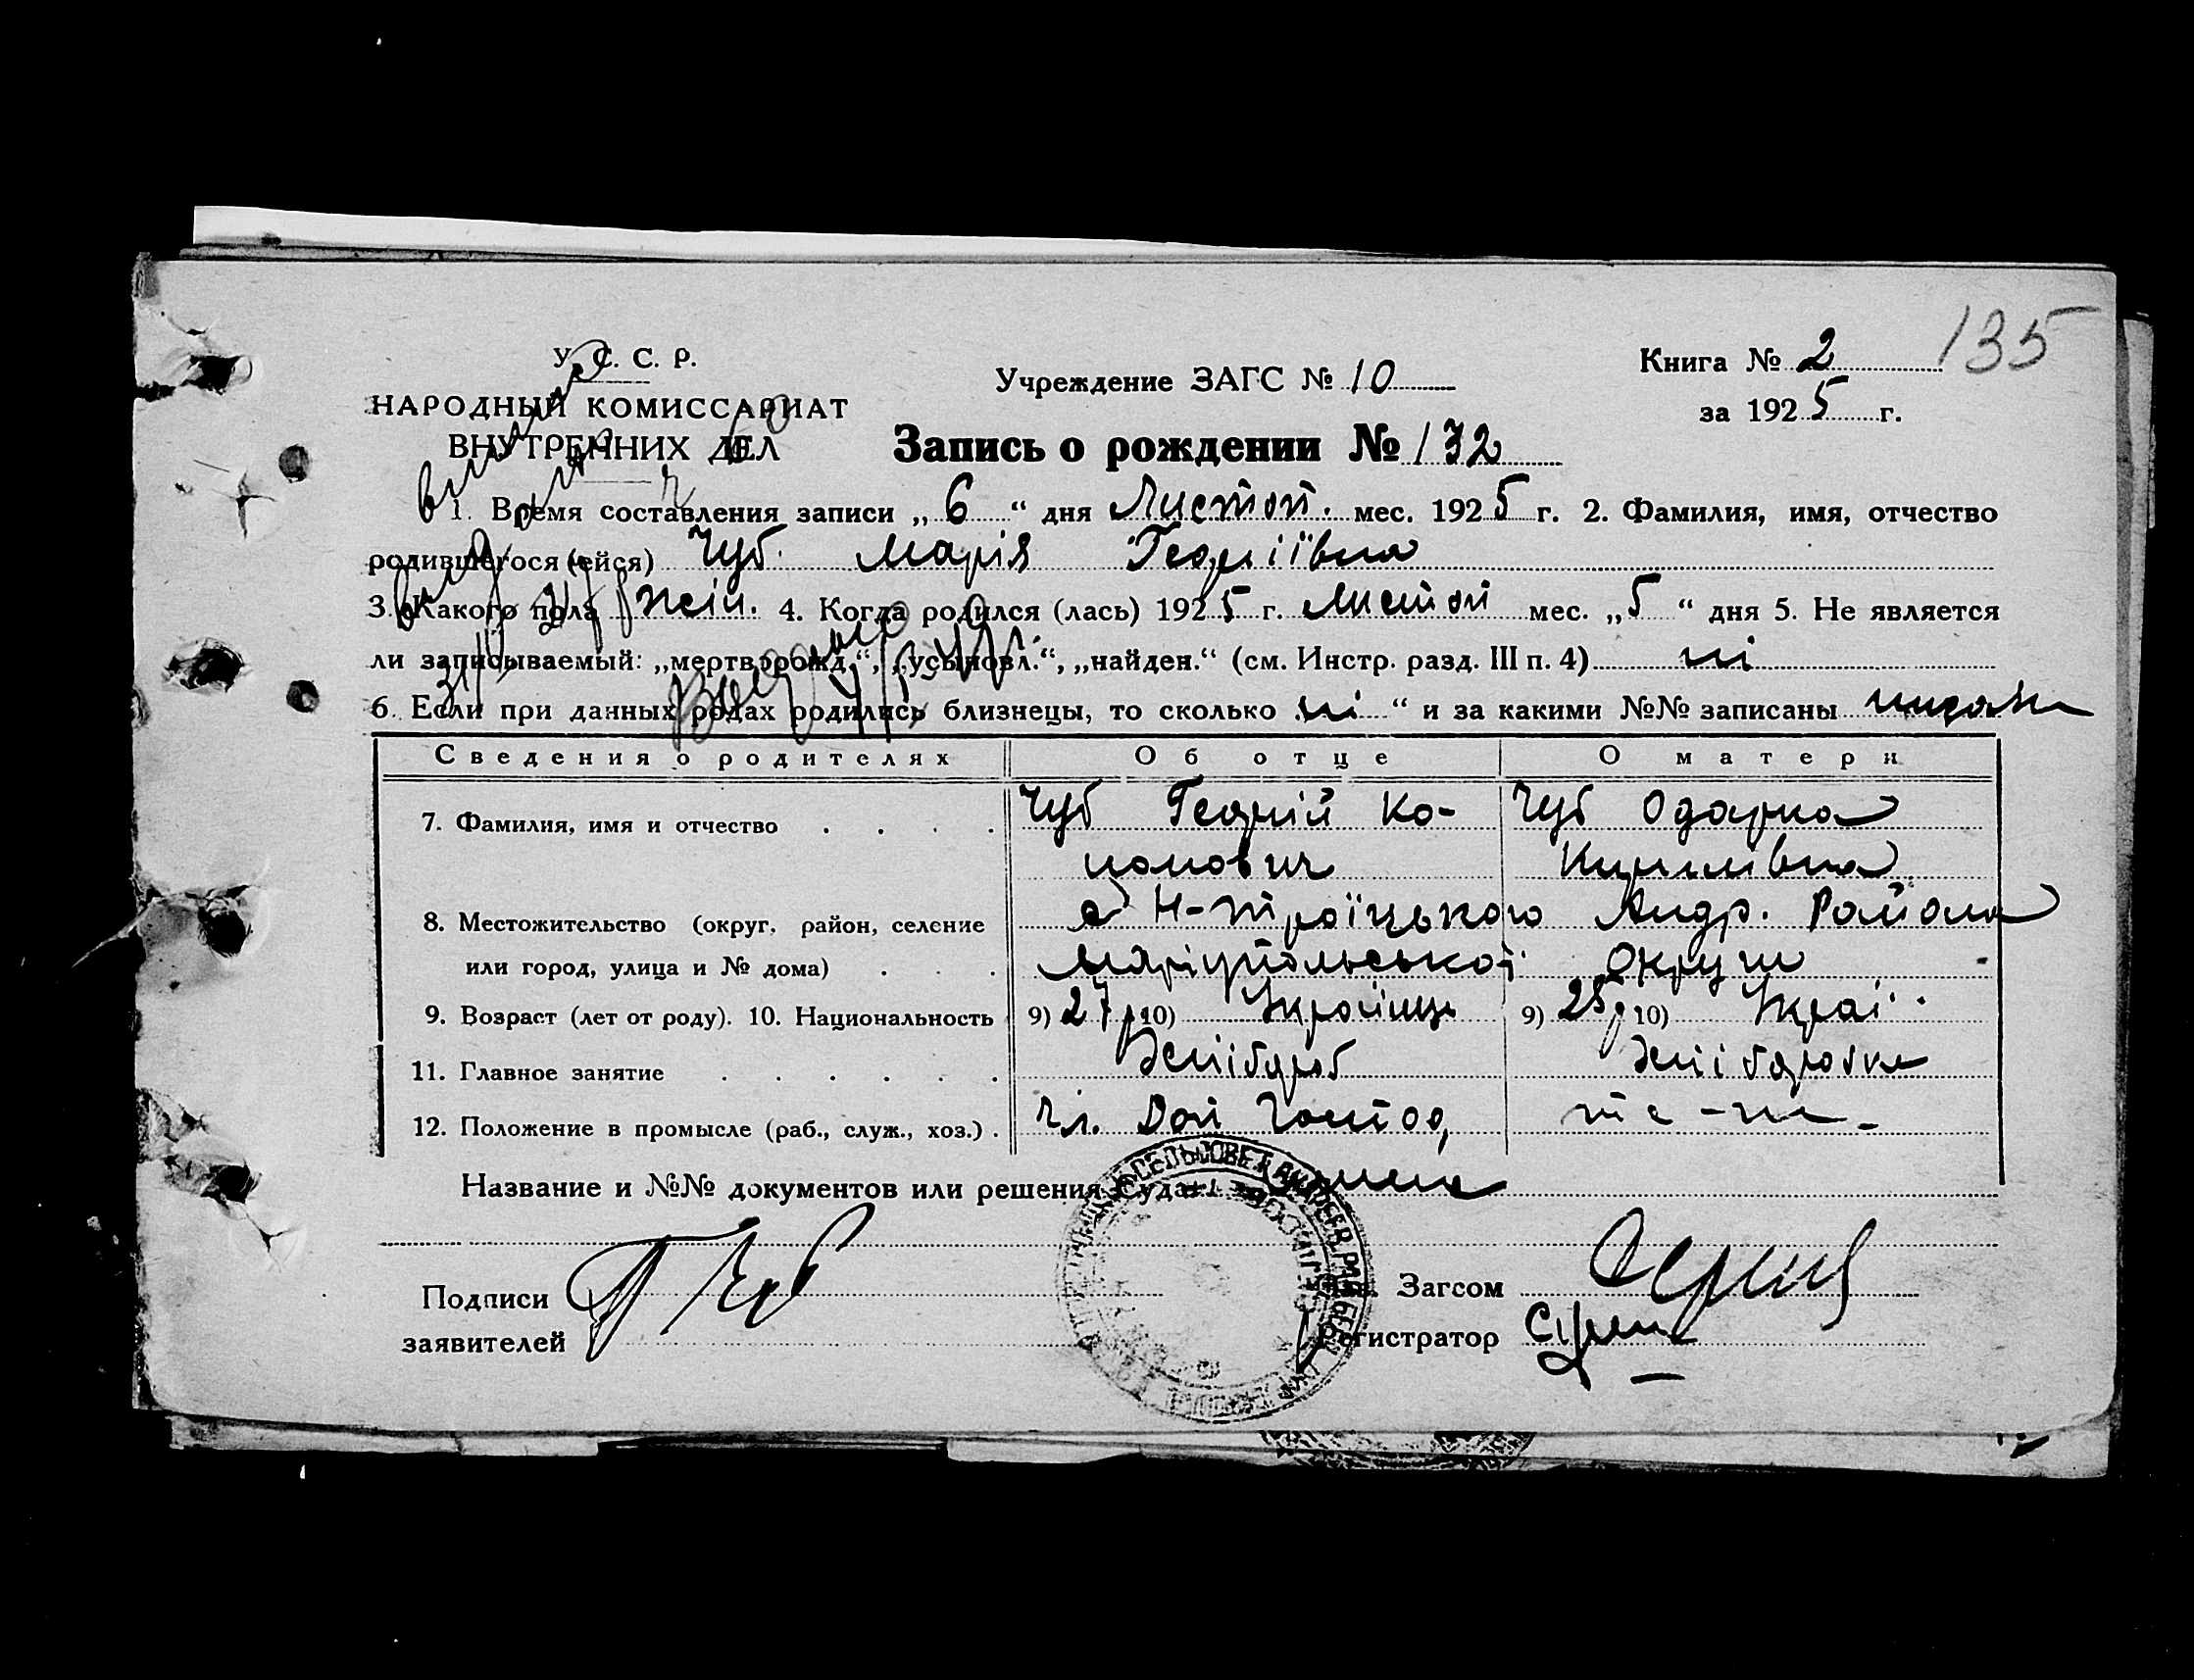 135
У. С. С. Р.
НАРОДНЫЙ КОМИССАРИАТ
ВНУТРЕННИХ ДЕЛ
Учреждение ЗАГС № 10
Книга № 2
за 1925 г.
Запись о рождении № 132
1. Время составления записи „6“ дня Листоп. мес. 1925 г. 2. Фамилия, имя, отчество
родившегося (ейся) Чуб Марія Георгіївна
3. Какого пола жін. 4. Когда родился (лась) 1925 г. Листоп мес. „5“ дня 5. Не является
ли записываемый: „мертворожд.“, „усыновл.“, „найден.“ (см. Инстр. разд. III п. 4) ні
6. Если при данных родах родились близнецы, то сколько ні “ и за какими №№ записаны
Сведения о родителях Об отце О матери
7. Фамилия, имя и отчество Чуб Георгій Ко-
нонович
Чуб Одарка
Кирилівна
8. Местожительство (округ, район, селение
или город, улица и № дома)
с Н-Троїцького Андр. Района
Маріупольської Округи
9. Возраст (лет от роду). 10. Национальность 9) 27 р 10) Українць 9) 25 р 10) Украї
11. Главное занятие Хлібороб Хліборобка
12. Положение в промысле (раб., служ., хоз.) Чл. Доп Господ те-ж
Название и №№ документов или решения Суда
Подписи
заявителей
Зав. Загсом
Регистратор